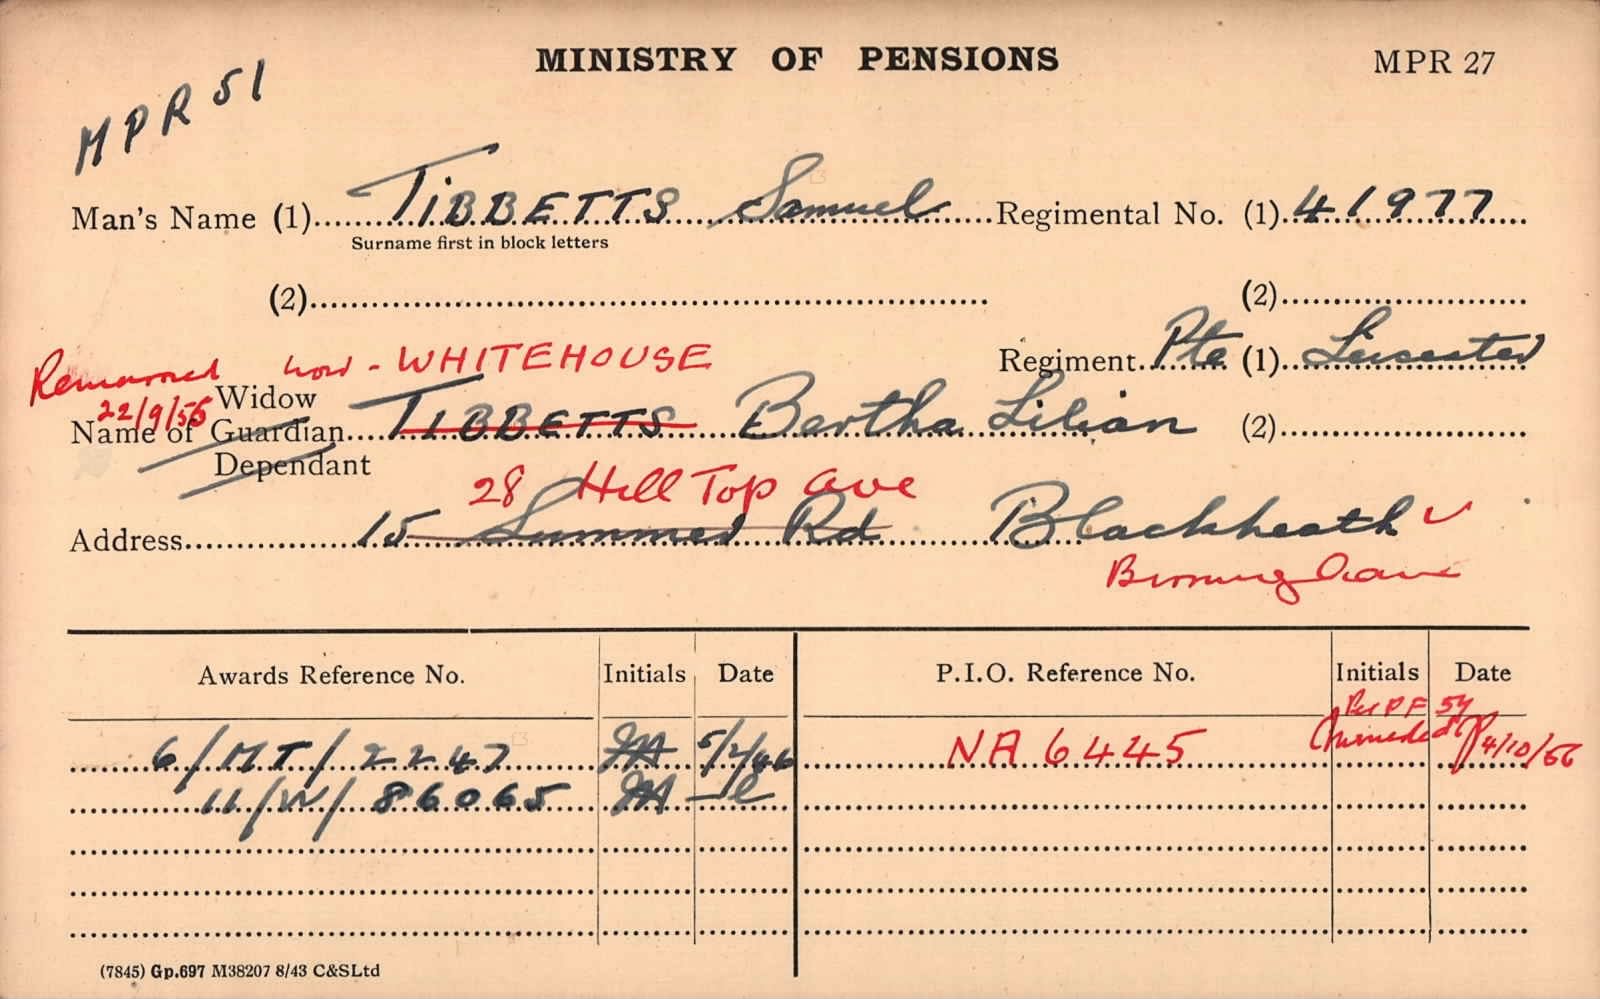 MINISTRY OF PENSIONS MPR 27
MPR 51
Man's Name (1) TIBBETTS Samuel Regimental No. (1) 41977
Surname first in block letters
(2) (2)
Remarried now - WHITEHOUSE Regiment Pte (1) Leicester
22/9/56 Widow
Name of Guardian TIBBETTS Bertha Lilian (2)
Dependant
28 Hill Top Ave
Address 15 Summer Rd Blackheath
Birmingham
Awards Reference No. Initials Date P.I.O. Reference No. Initials Date
Per PF 54
6/MT/2247 5/2/46 NA 6445 4/10/56
11/W/86065
(7845) Gp.697 M38207 8/43 C&SLtd